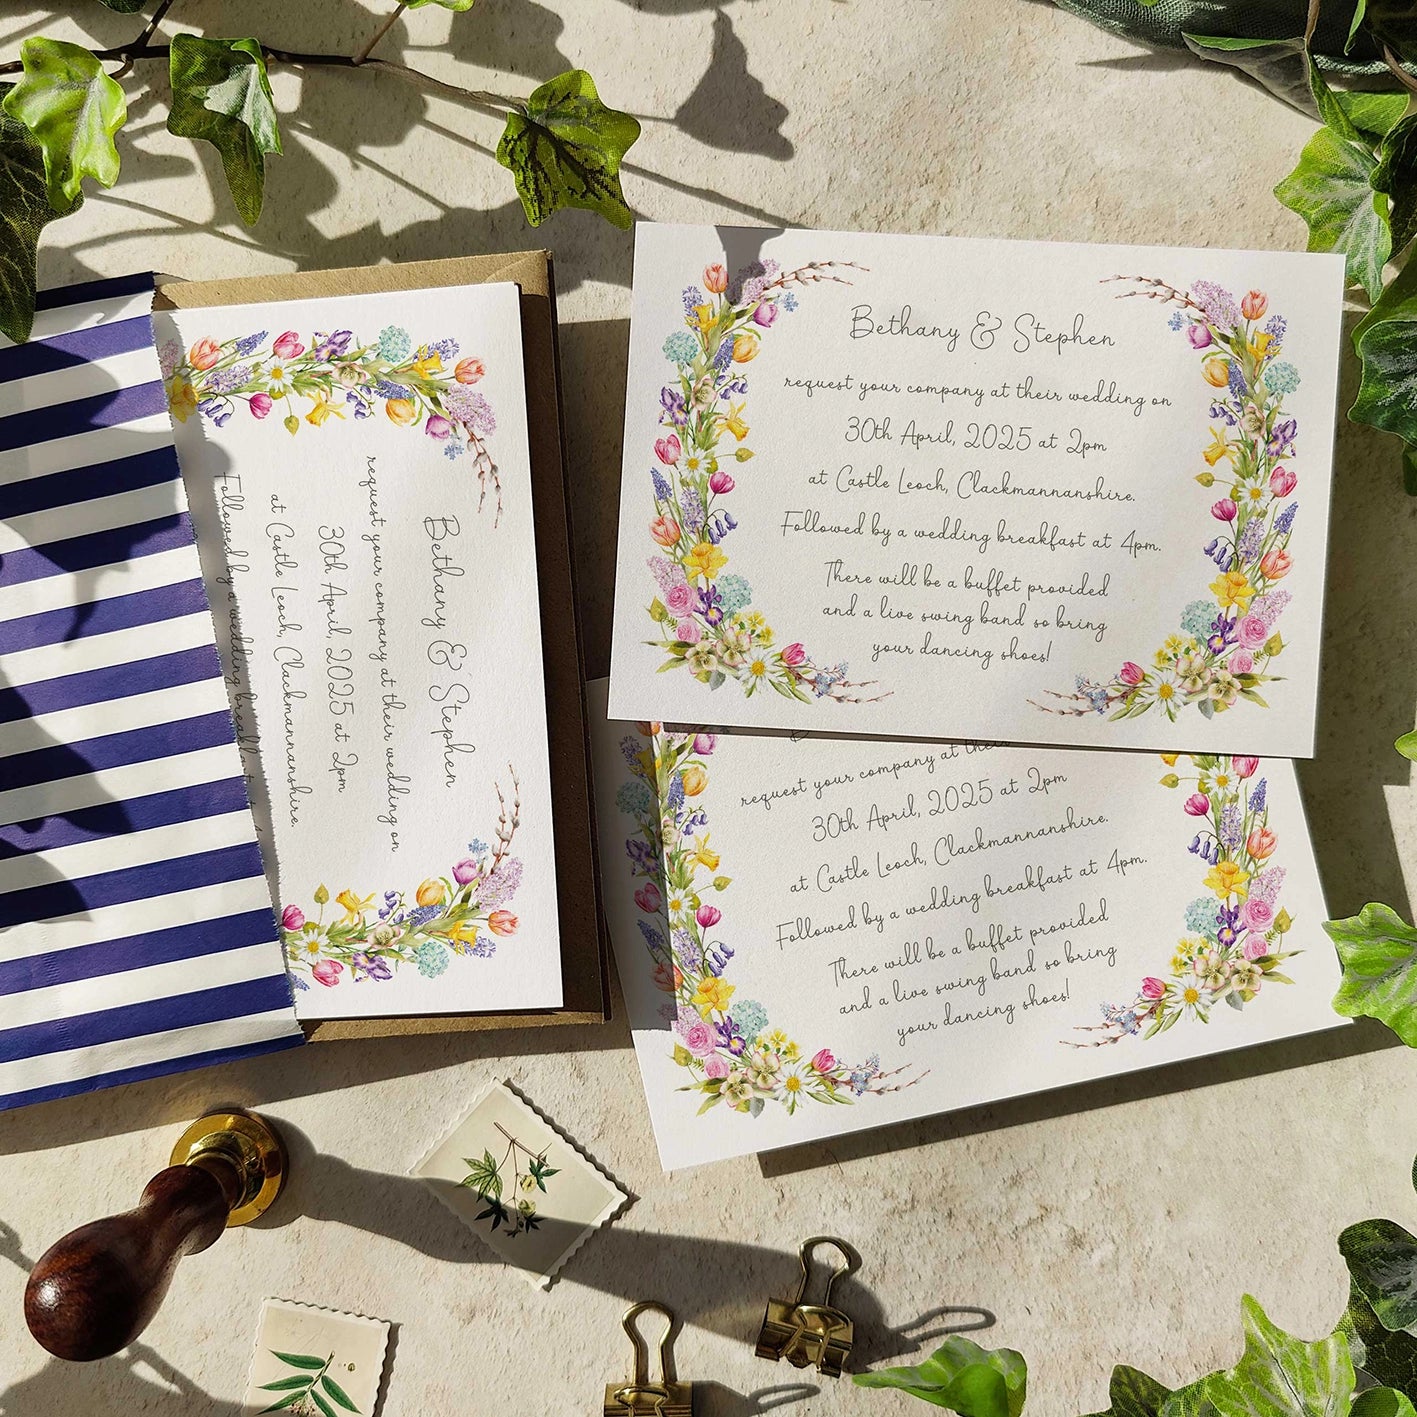 Bethany & Stephen
request your company at their wedding on
30th April, 2025 at 2pm
at Castle Leoch, Clackmannanshire.
Followed by a wedding breakfast at 4pm.
There will be a buffet provided
and a live swing band so bring
your dancing shoes!
Bethany & Stephen
request your company at their wedding on
30th April, 2025 at 2pm
at Castle Leoch, Clackmannanshire.
Followed by a wedding breakfast at
request your company at their
30th April, 2025 at 2pm
at Castle Leoch, Clackmannanshire.
Followed by a wedding breakfast at 4pm.
There will be a buffet provided
and a live swing band so bring
your dancing shoes!